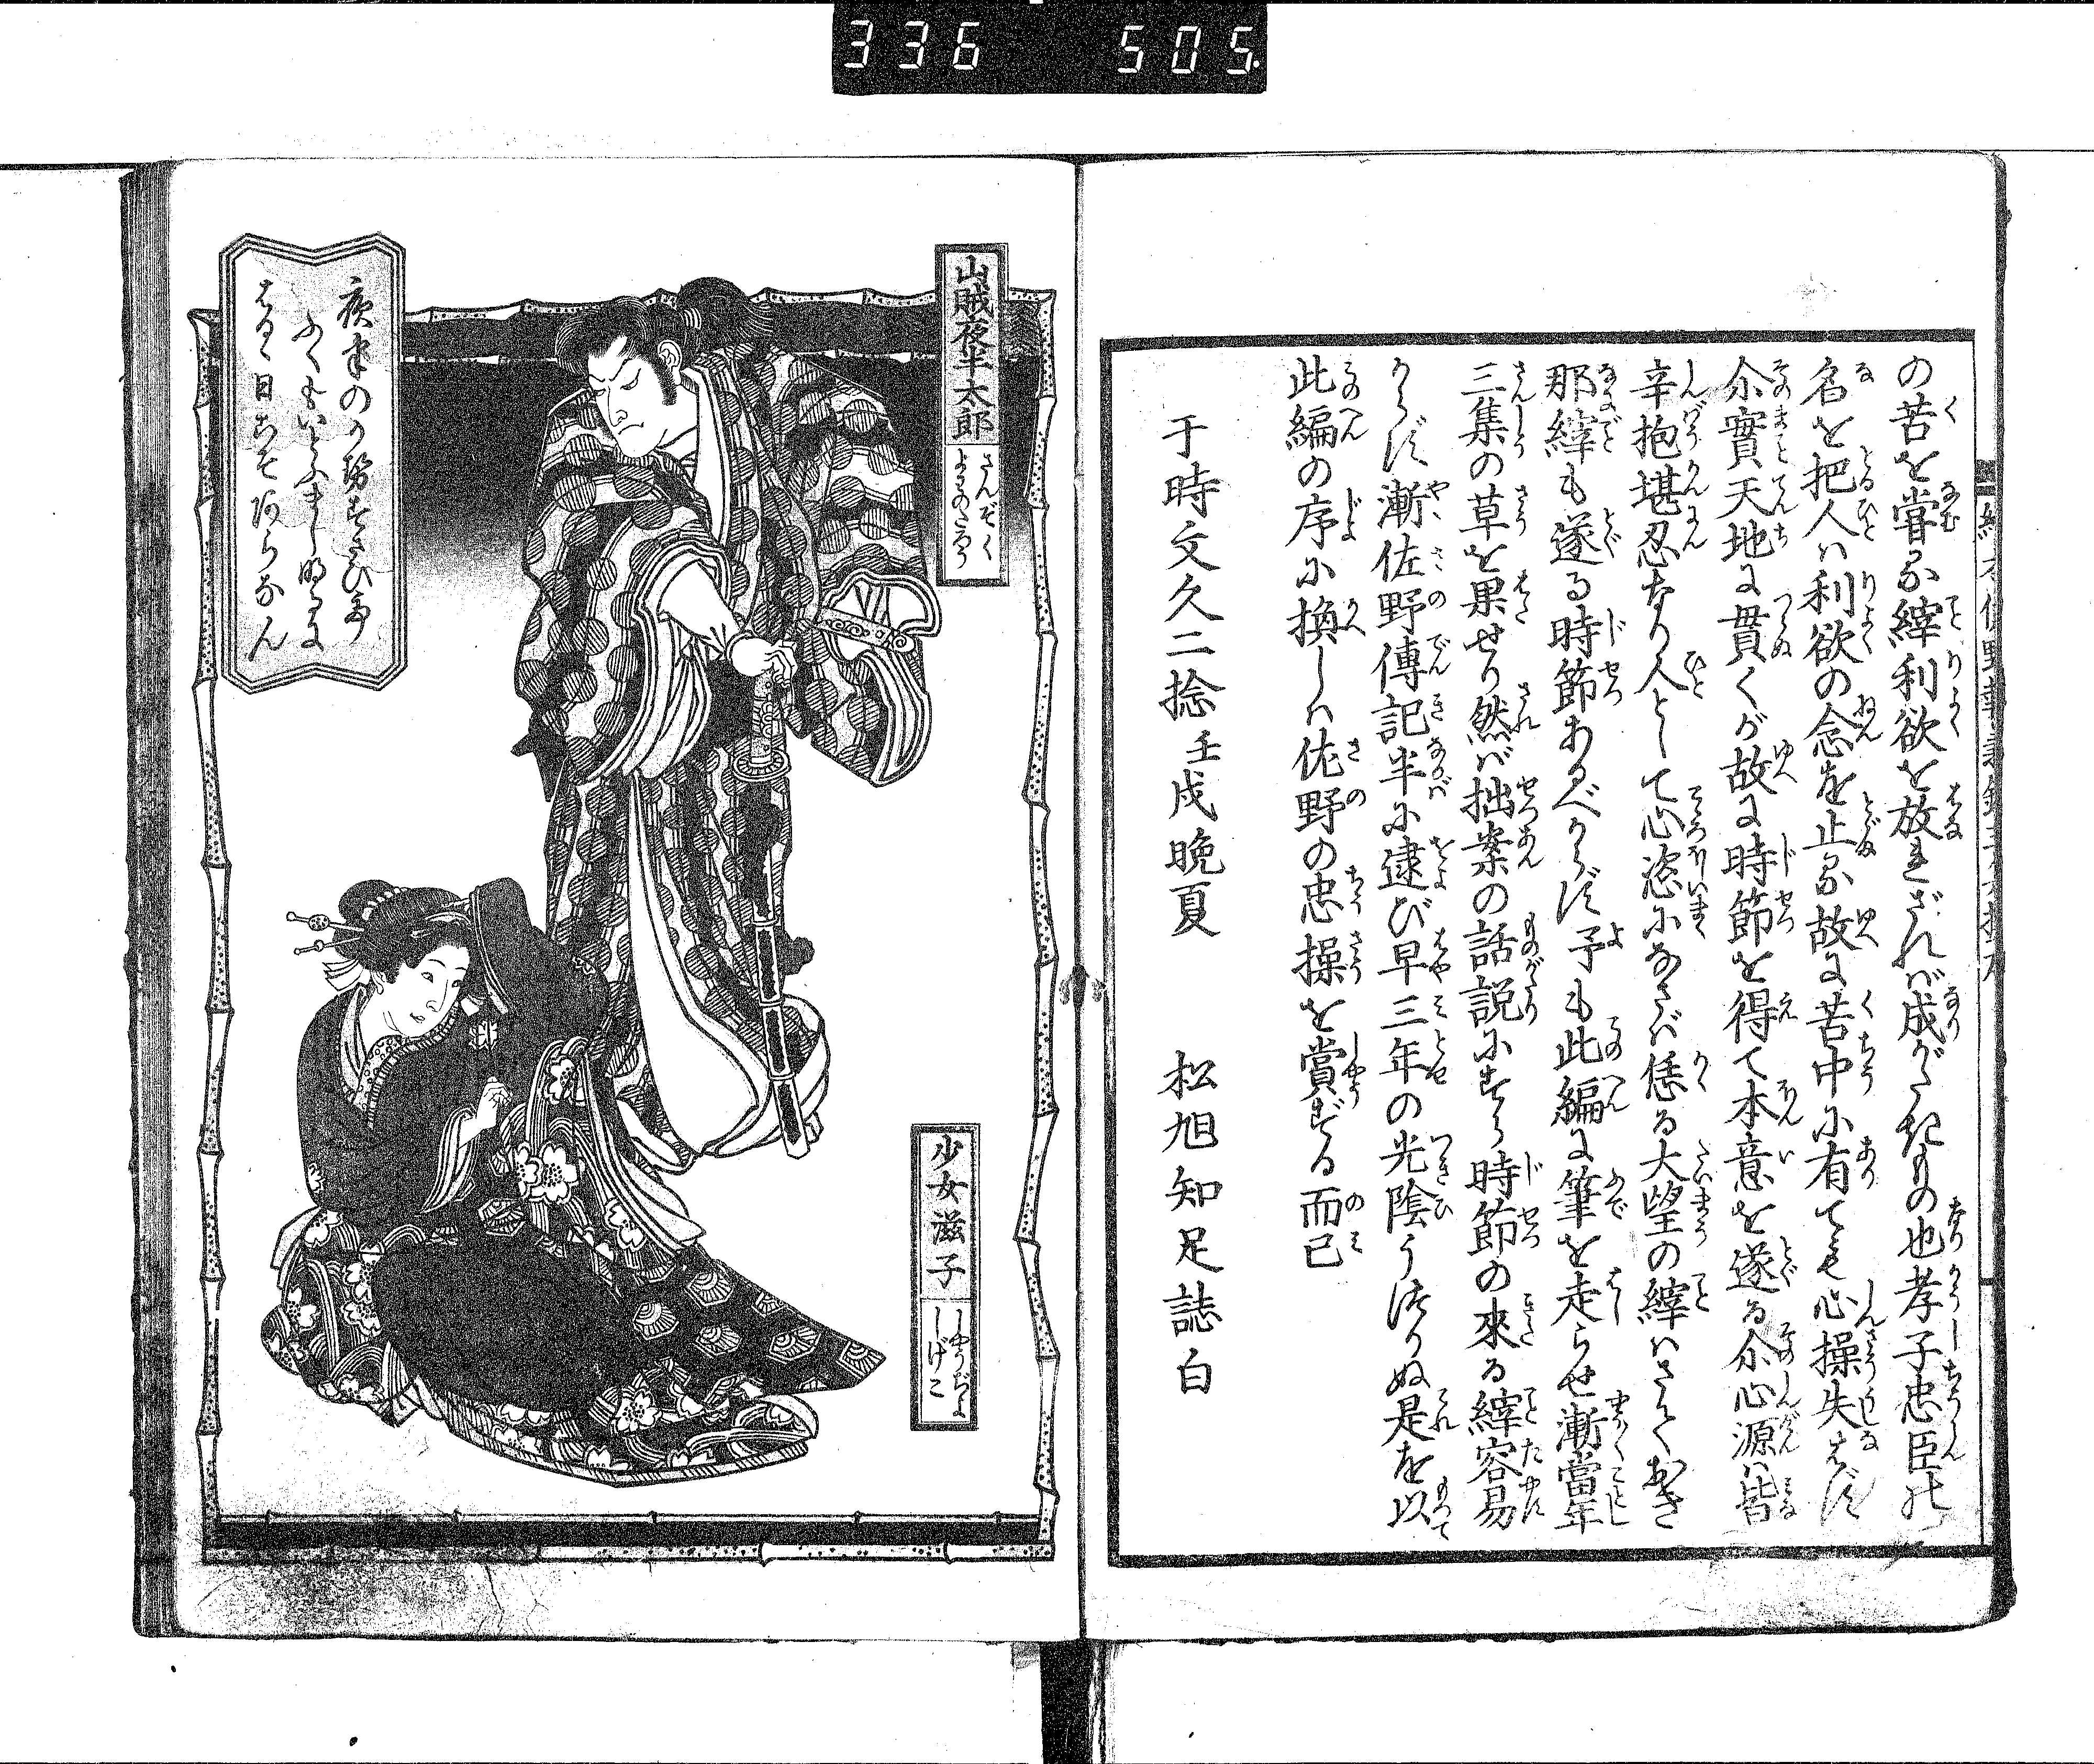 336 505
の苦を甞る縡利欲を放れざれば成がたきもの也孝子忠臣の
名を把人ハ利欲の念を止る故に苦中に有ても心操失はず
尒實天地に貫くが故に時節を得て本意を遂る尒心源ハ皆
辛抱堪忍なり人として心恣になさバ恁る大望の縡ハさておき
那縡も遂る時節あるべからず予も此編に筆を走らせ漸當年
三集の草を果せり然バ拙案の話説にすら時節の來る縡容易
からず漸佐野傳記半に逮び早三年の光陰うつりぬ是を以
此編の序に換しハ佐野の忠操を賞ずる而已
于時文久二捻壬戌晩夏 松旭知足誌白
山賊夜半太郎
さんぞく
よはのたろう
少女滋子
しやうぢよ
しげこ